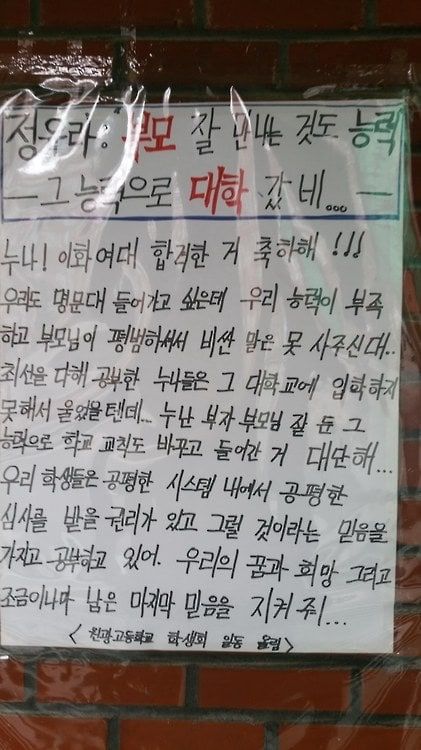 정유라: 부모 잘 만나는 것도 능력
— 그 능력으로 대학 갔네... —
누나! 이화여대 합격한 거 축하해!!!
우리도 명문대 들어가고 싶은데 우리 능력이 부족
하고 부모님이 평범하셔서 비싼 말은 못 사주신대..
최선을 다해 공부한 누나들은 그 대학교에 입학하지
못해서 울었을텐데... 누난 부자 부모님 잘 둔 그
능력으로 학교 교칙도 바꾸고 들어간 거 대단해...
우리 학생들은 공평한 시스템 내에서 공평한
심사를 받을 권리가 있고 그럴 것이라는 믿음을
가지고 공부하고 있어. 우리의 꿈과 희망 그리고
조금이나마 남은 마지막 믿음을 지켜줘!...
< 원광고등학교 학생회 일동 올림 >